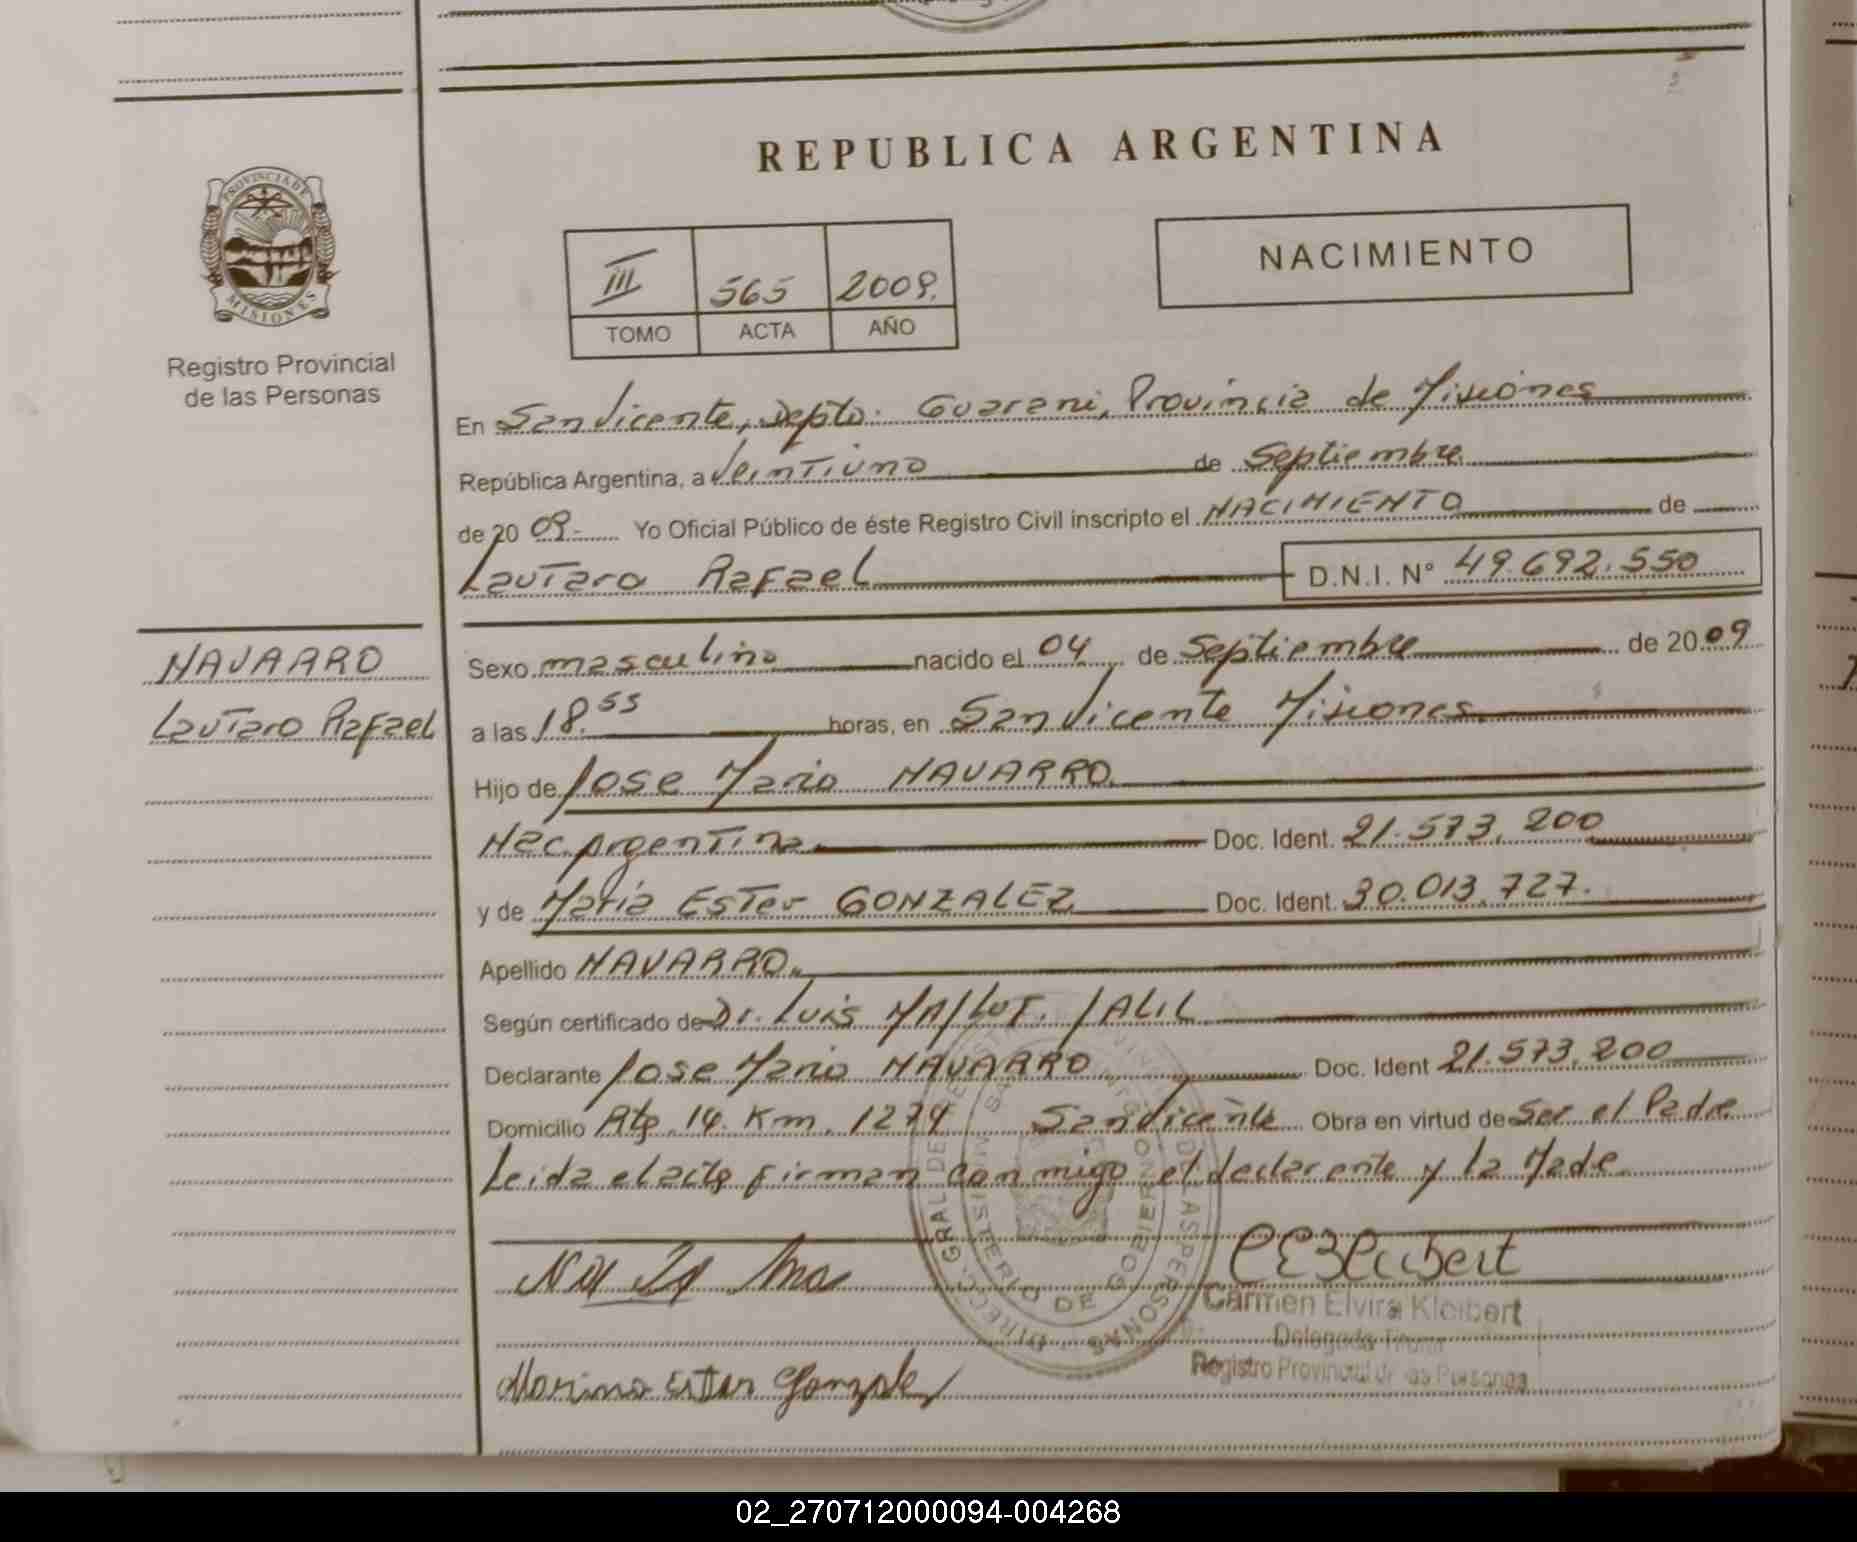 REPUBLICA ARGENTINA
PROVINCIA DE
MISIONES
Registro Provincial
de las Personas
III 565 2009.
TOMO ACTA AÑO
NACIMIENTO
En San Vicente, Depto. Guarani, Provincia de Misiones
República Argentina, a Veintiuno de Septiembre
de 20 09.- Yo Oficial Público de éste Registro Civil inscripto el NACIMIENTO de
Lautaro Rafael D.N.I. N° 49.692.550
NAVARRO
Lautaro Rafael
Sexo masculino nacido el 04 de Septiembre de 20 09
a las 18.55 horas, en San Vicente Misiones
Hijo de Jose Mario NAVARRO
Nac Argentina. Doc. Ident. 21.573.200
y de Maria Ester GONZALEZ Doc. Ident. 30.013.727.
Apellido NAVARRO.
Según certificado de Dr. Luis JALIL
Declarante Jose Mario NAVARRO Doc. Ident 21.573.200
Domicilio Km. 1274 San Vicente Obra en virtud de Ser el Padre
Leida el acta firman conmigo el declarante y la Made
DIRECC. GRAL DE
MINISTERIO DE GOBIERNO
Carmen Elvira Kleibert
Delegada Titular
Registro Provincial de las Personas
Ester Gonzalez
02_270712000094-004268